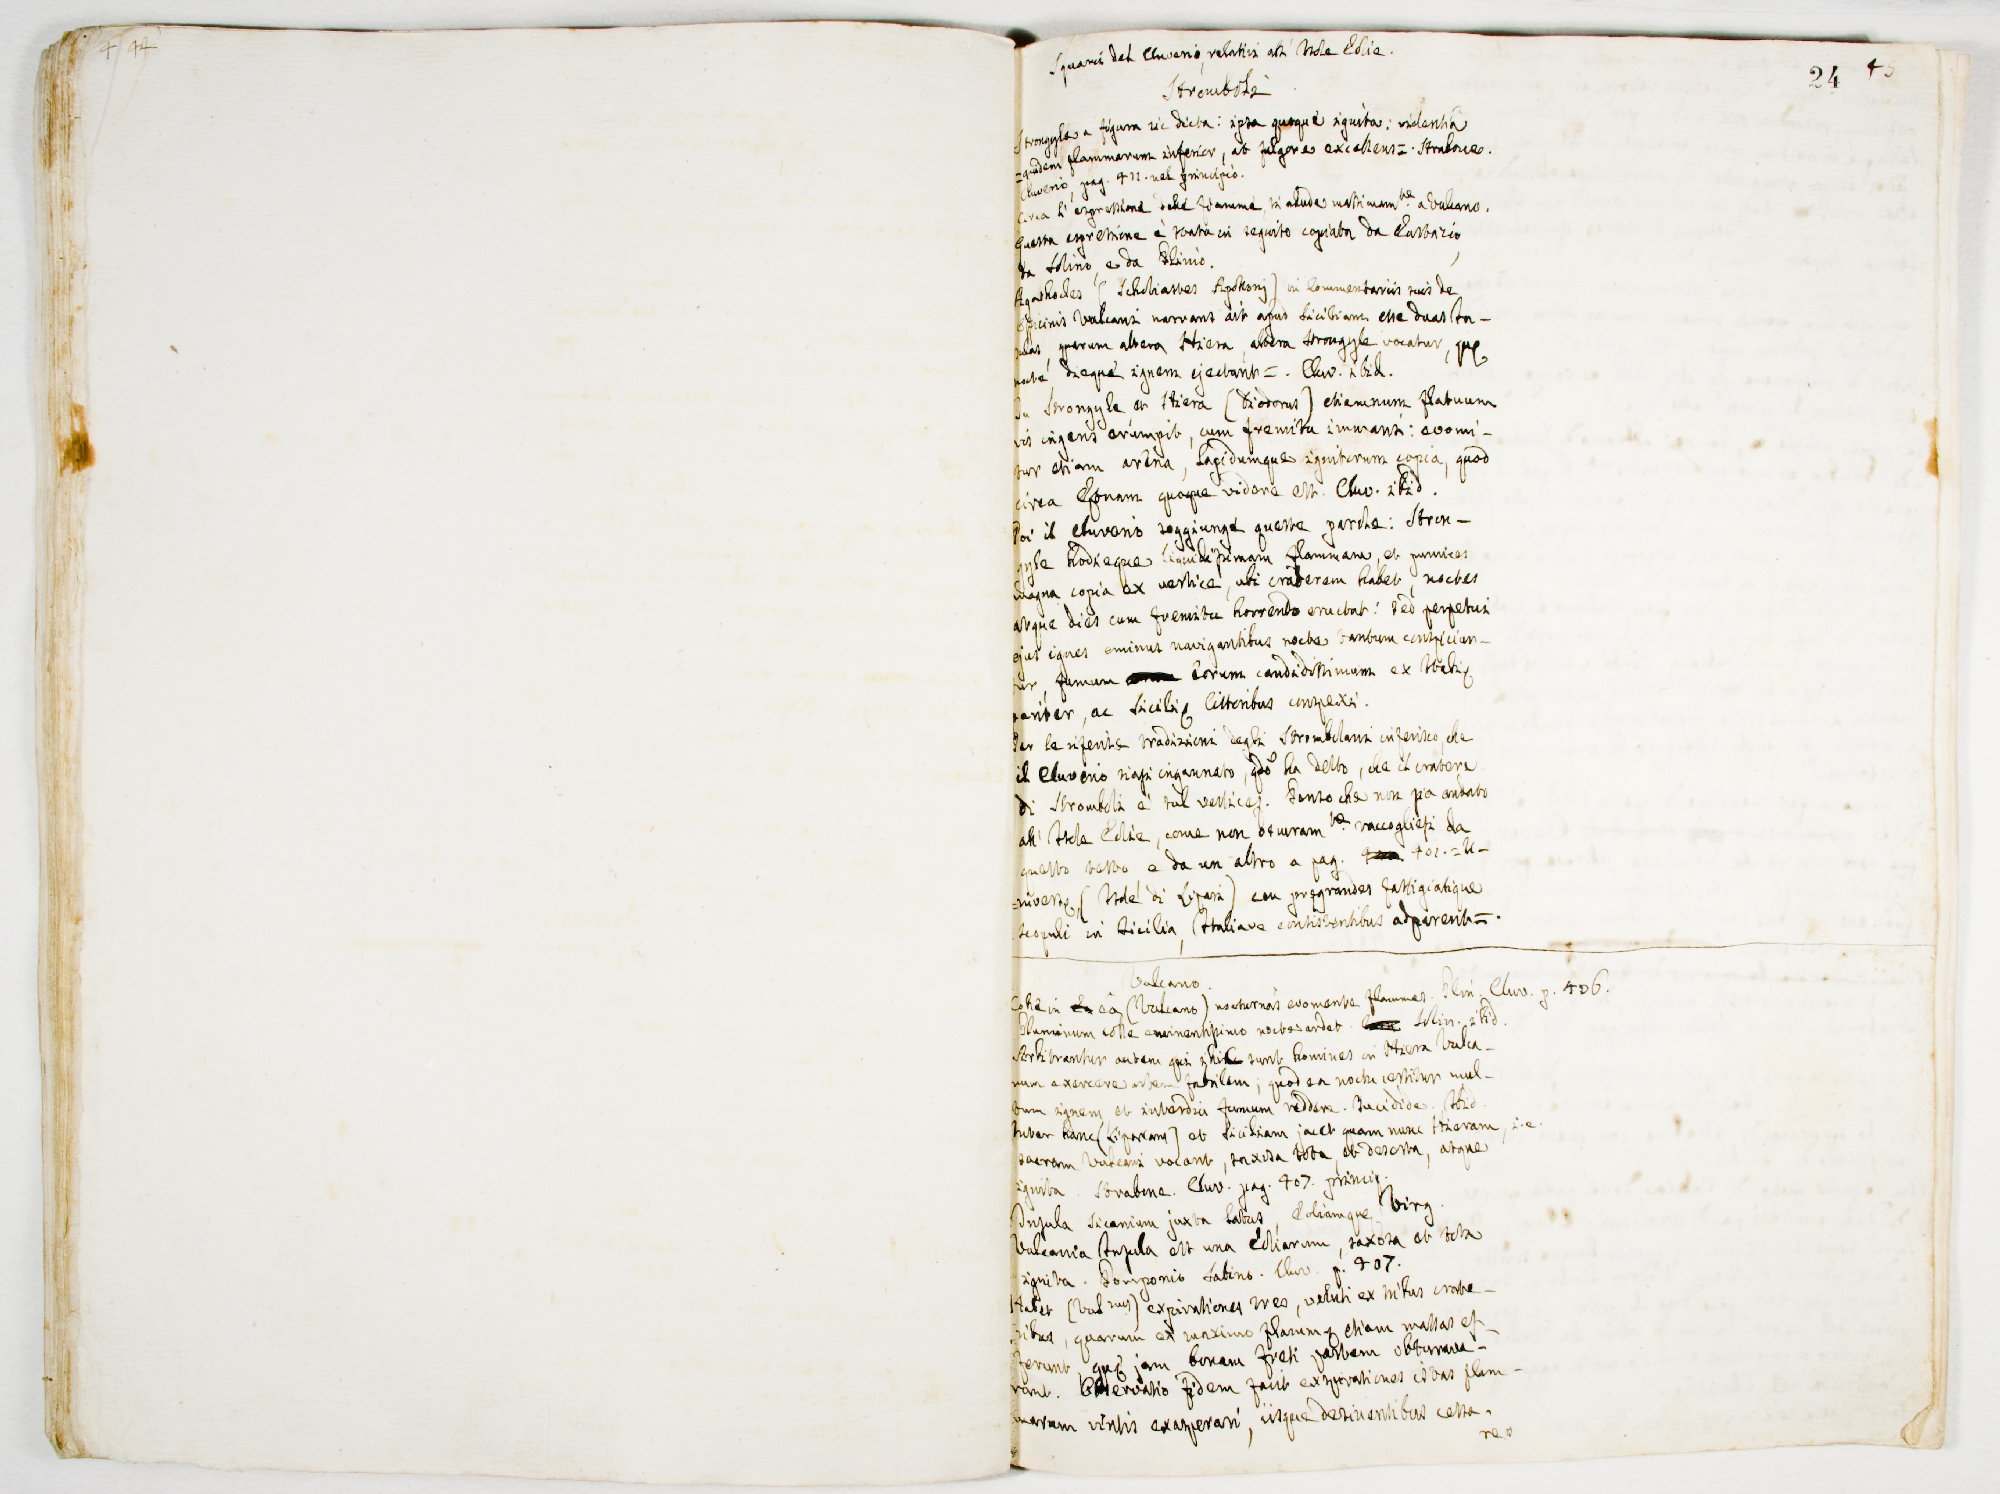 4 44
24 45
Squarci del Cluverio, relativi all' Isole Eolie.
Stromboli
Strongyle a figura sic dicta: ipsa quoque ignita: violentia
=quidem flammarum inferior, at fulgore excellens=. Strabone.
Cluverio, pag. 411. nel principio.
Circa l' espressione delle fiamme, si allude massimam.te a Vulcano.
Questa espressione è stata in seguito copiata da Eustazio,
da Solino, e da Plinio.
Agathocles (Scholiastes Apollonj) in commentariis suis de
officinis Vulcani narrans ait apud Siciliam esse duas In-
sulas, quarum altera Hiera, altera Strongyle vocatur, quę
nocte, dieque ignem ejectant=. Cluv. ibid.
In Strongyle et Hiera (Diodorus) etiamnum flatuum
vis ingens erumpit, cum fremitu immani: evomi-
tur etiam arena, lapidumque ignitorum copia, quod
circa Ętnam quoque videre est. Cluv. ibid.
Poi il Cluverio soggiunge queste parole: Stron-
gyle hodieque liquidissimam flammam, et pumices
magna copia ex vertice, ubi craterem habet, noctes
atque dies cum fremitu horrendo eructat: sed perpetui
ejus ignes eminus navigantibus nocte tantum conspician-
tur, fumum eorum candidissimum ex Italię
pariter, ac Sicilię littoribus conspexi.
Per le riferite tradizioni degli Strombolani inferisco, che
il Cluverio siasi ingannato, qdo ha detto, che il cratere
di Stromboli è sul vertice. Penso che non sia andato
all' Isole Eolie, come non oscuram.te raccogliesi da
questo testo e da un altro a pag. 401. =U-
=niversę, (Isole di Lipari) ceu pręgrandes fastigiatique
scopuli in Sicilia, Italiave consistentibus adparent=.
Vulcano.
Colle in ea (Vulcano) nocturnas evomente flammas. Plin. Cluv. p. 406.
Plurimum colle eminentissimo noctes ardet. Solin. ibid.
Arbitrantur autem qui illic sunt homines in Hiera Vulca-
num exercere artem fabrilem; quod ea noctu cernitur mul-
tum ignem et interdiu fumum reddere. Tucidide. Ibid.
Inter hanc (Liparam) et Siciliam jacet quam nunc Hieram, i.e.
sacram Vulcani vocant, saxosa tota, et deserta, atque
ignita. Strabone. Cluv. pag. 407. princip.
Insula Sicanium juxta latus, Eoliamque Virg.
Vulcania Insula est una Eoliarum, saxosa et tota
ignita. Pomponio Sabino. Cluv. p. 407.
Habet (Vulnus) expirationes tres, veluti ex tribus crate-
ribus, quarum ex maximo flammę etiam massas ef-
ferunt, quę jam bonam freti partem obturava-
runt. Observatio fidem facit expirationes istas flam-
marum ventis exasperari, iisque desinentibus cessa-
re.